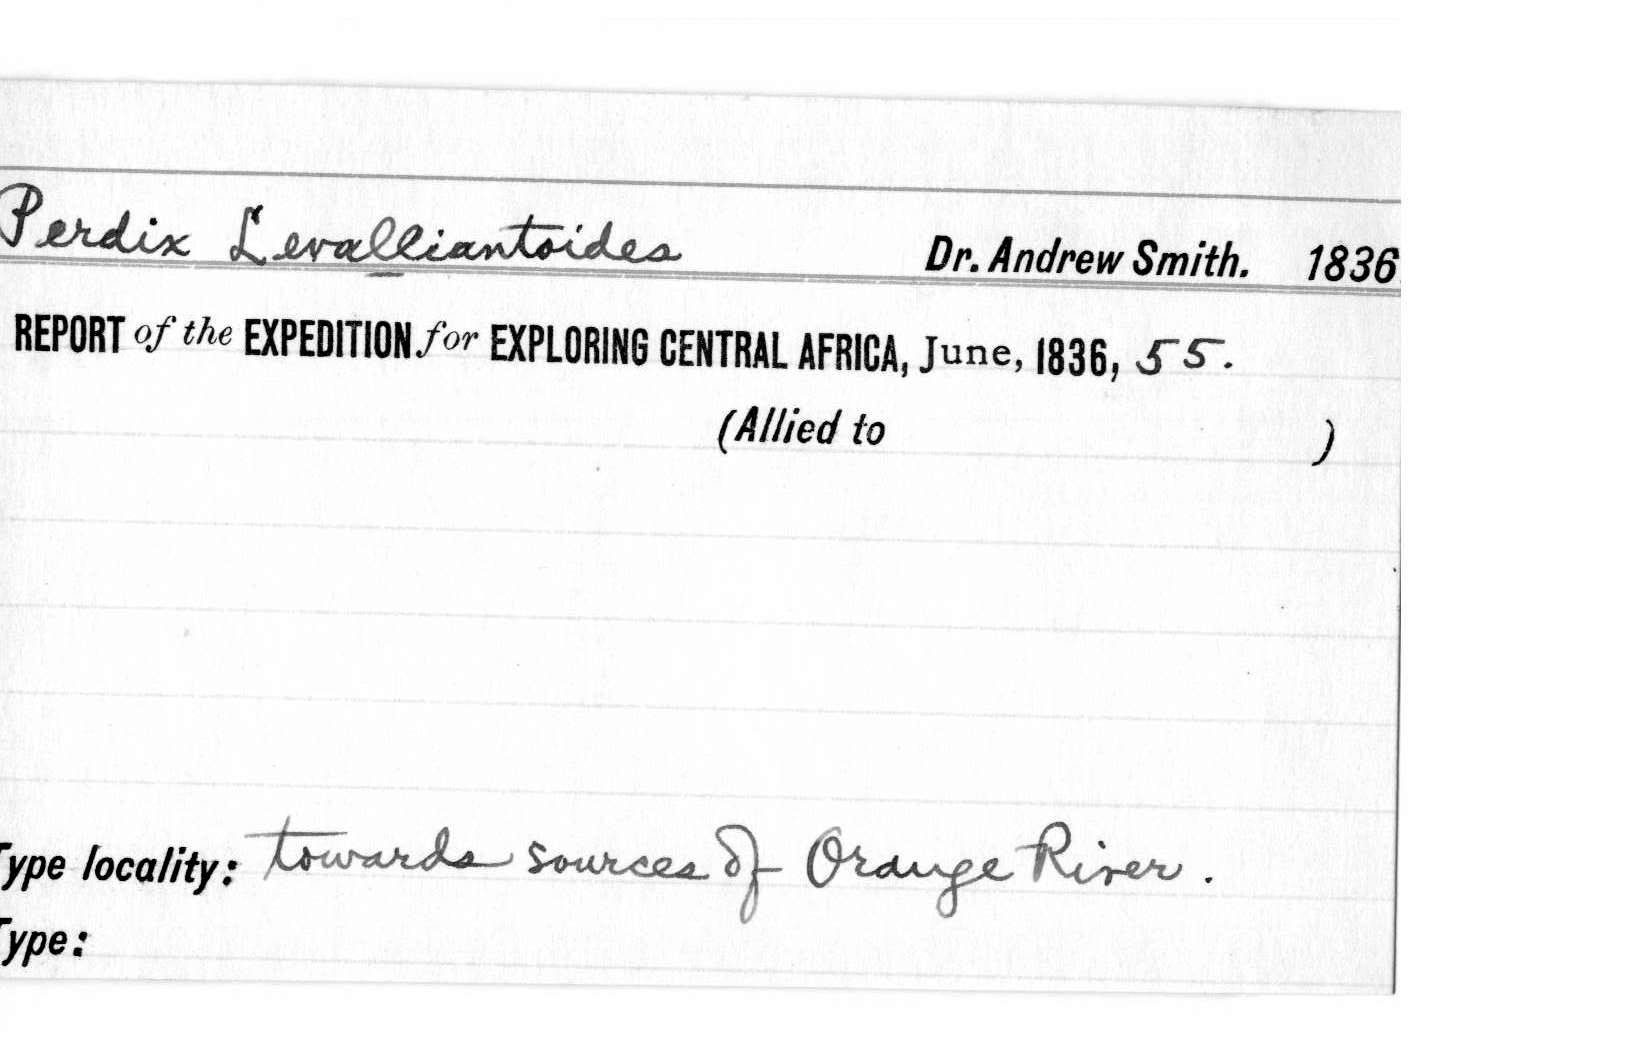 Perdix Levalliantoides Dr. Andrew Smith. 1836
REPORT of the EXPEDITION for EXPLORING CENTRAL AFRICA, June, 1836, 55.
(Allied to )
Type locality: towards sources of Orange River.
Type: